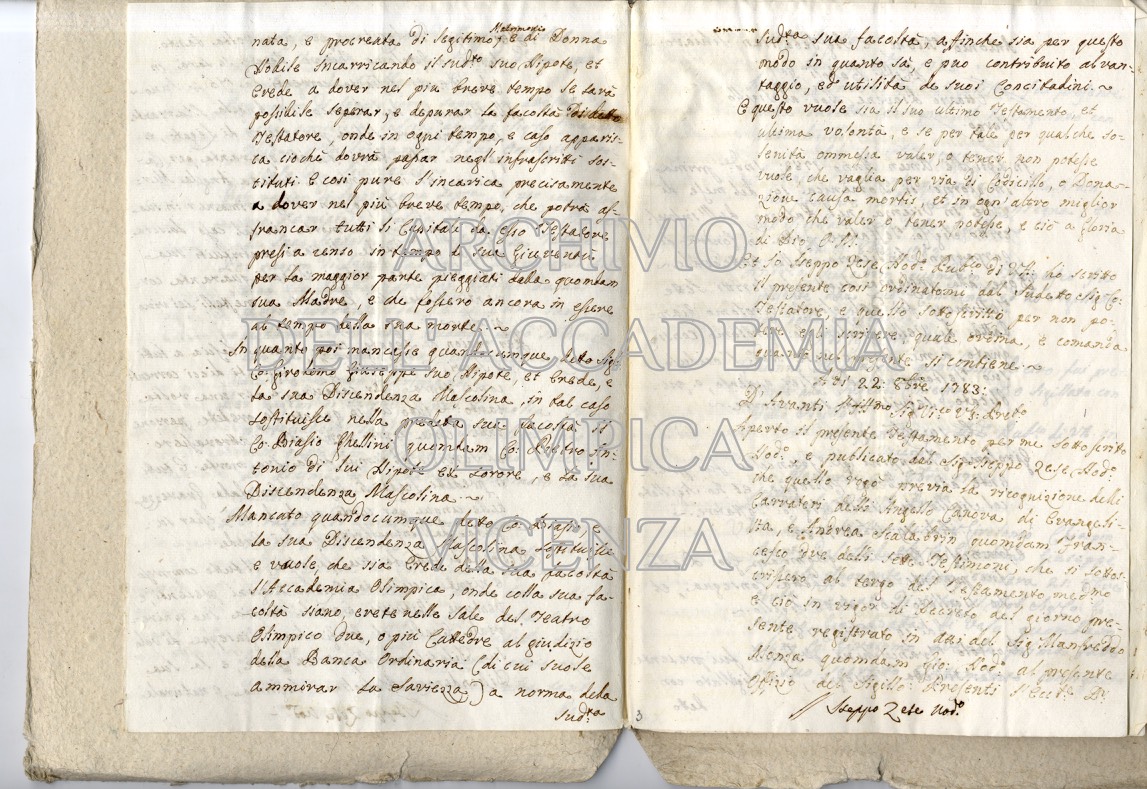 Matrimonio
nata, e procreata di legitimo, e di Donna
Nobile incarricando il sud.to suo Nipote, et
Erede a dover nel più breve tempo le sarà
possibile separar, e depurar la facoltà di detto
Testatore, onde in ogni tempo, e caso apparis-
ca ciochè dovrà passar negl'infrascritti sos-
tituti. E così pure l'incarica precisamente
a dover nel più breve tempo, che potrà af-
francar tutti li Capitali da esso Testatore
presi a censo in tempo di sua Gioventù
per la maggior parte pieggiati dalla quondam
sua Madre, e che fossero ancora in essere
al tempo della sua morte. ~
In quanto poi mancasse quandocumque detto Sig.
Co: Girolemo Giuseppe suo Nipote, et Erede, e
la sua Discendenza Mascolina, in tal caso
sostituisce nella predetta sua facoltà il
Co: Biasio Ghellini quondam Co: Pietro An-
tonio di lui Nipote ex sorore, e la sua
Discendenza Mascolina ~
Mancato quandocumque detto Co: Biasio, e
la sua Discendenza Mascolina sostituisce
e vuole, che sia Erede della sua facoltà
l'Accademia Olimpica, onde colla sua fa-
coltà siano erete nelle Sale del Teatro
Olimpico due, o più Catedre al giudizio
della Banca Ordinaria (di cui suole
ammirar la saviezza) a norma della
sud.ta
sud.ta sua facoltà, affinche sia per questo
modo in quanto sà, e può contribuito al van-
taggio, ed utilità de suoi Concitadini. ~
E questo vuole sia il suo ultimo Testamento, et
ultima volontà, e se per tale per qualche so-
lenità ommessa valer, o tener non potesse
vuole, che vaglia per via di Codicillo, o Dona-
zione causa mortis, et in ogn'altro miglior
modo che valer o tener potesse, e ciò a gloria
di Dio
Et Io Iseppo Zese Nod.o Publico di Vic.a hò scritto
il presente così ordinatomi dal sudetto Sig. Co:
Testatore, e quello sottoscritto per non po-
tere egli scrivere, quale ordina, e comanda
quanto nel presente si contiene. ~
Adi 22: 8bre 1783:
D'Avanti
Aperto il presente Testamento per me sottoscrito
Nod.o, e publicato dal Sig. Iseppo Zese Nod.o
che quello rogò previa la ricognizione deli
Carratteri dellì Angelo Canova di Evangeli-
sta, e Andrea Scalabrin quondam Fran-
cesco due deli sette Testimonii, che si sottos-
crissero al tergo del Testamento med.mo
e ciò in vigor di Decreto del giorno pre-
sente registrato in atti del Sig. Manfreddo
Monza quondam Gio: Nod.o al presente
Offizio del Sigillo. Presenti l'Ecc.te D.r
Iseppo Zese Nod.o
3
ARCHIVIO
DELL'ACCADEMIA
OLIMPICA
VICENZA